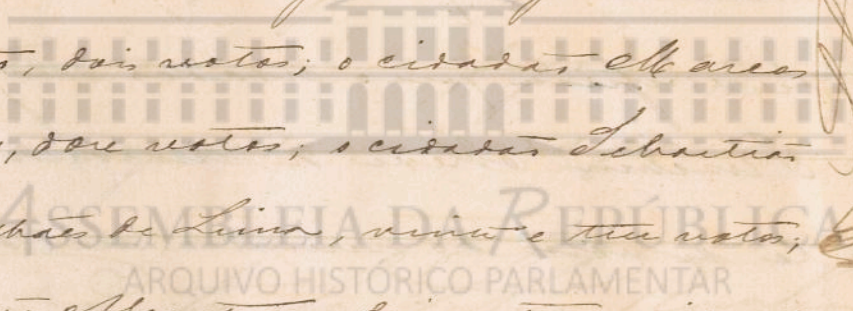 , dois votos; o cidadão Marcos
, doze votos; o cidadão Sebastião
ASSEMBLEIA DA REPÚBLICA
lhães de Lima, vinte e tres votos;
ARQUIVO HISTÓRICO PARLAMENTAR